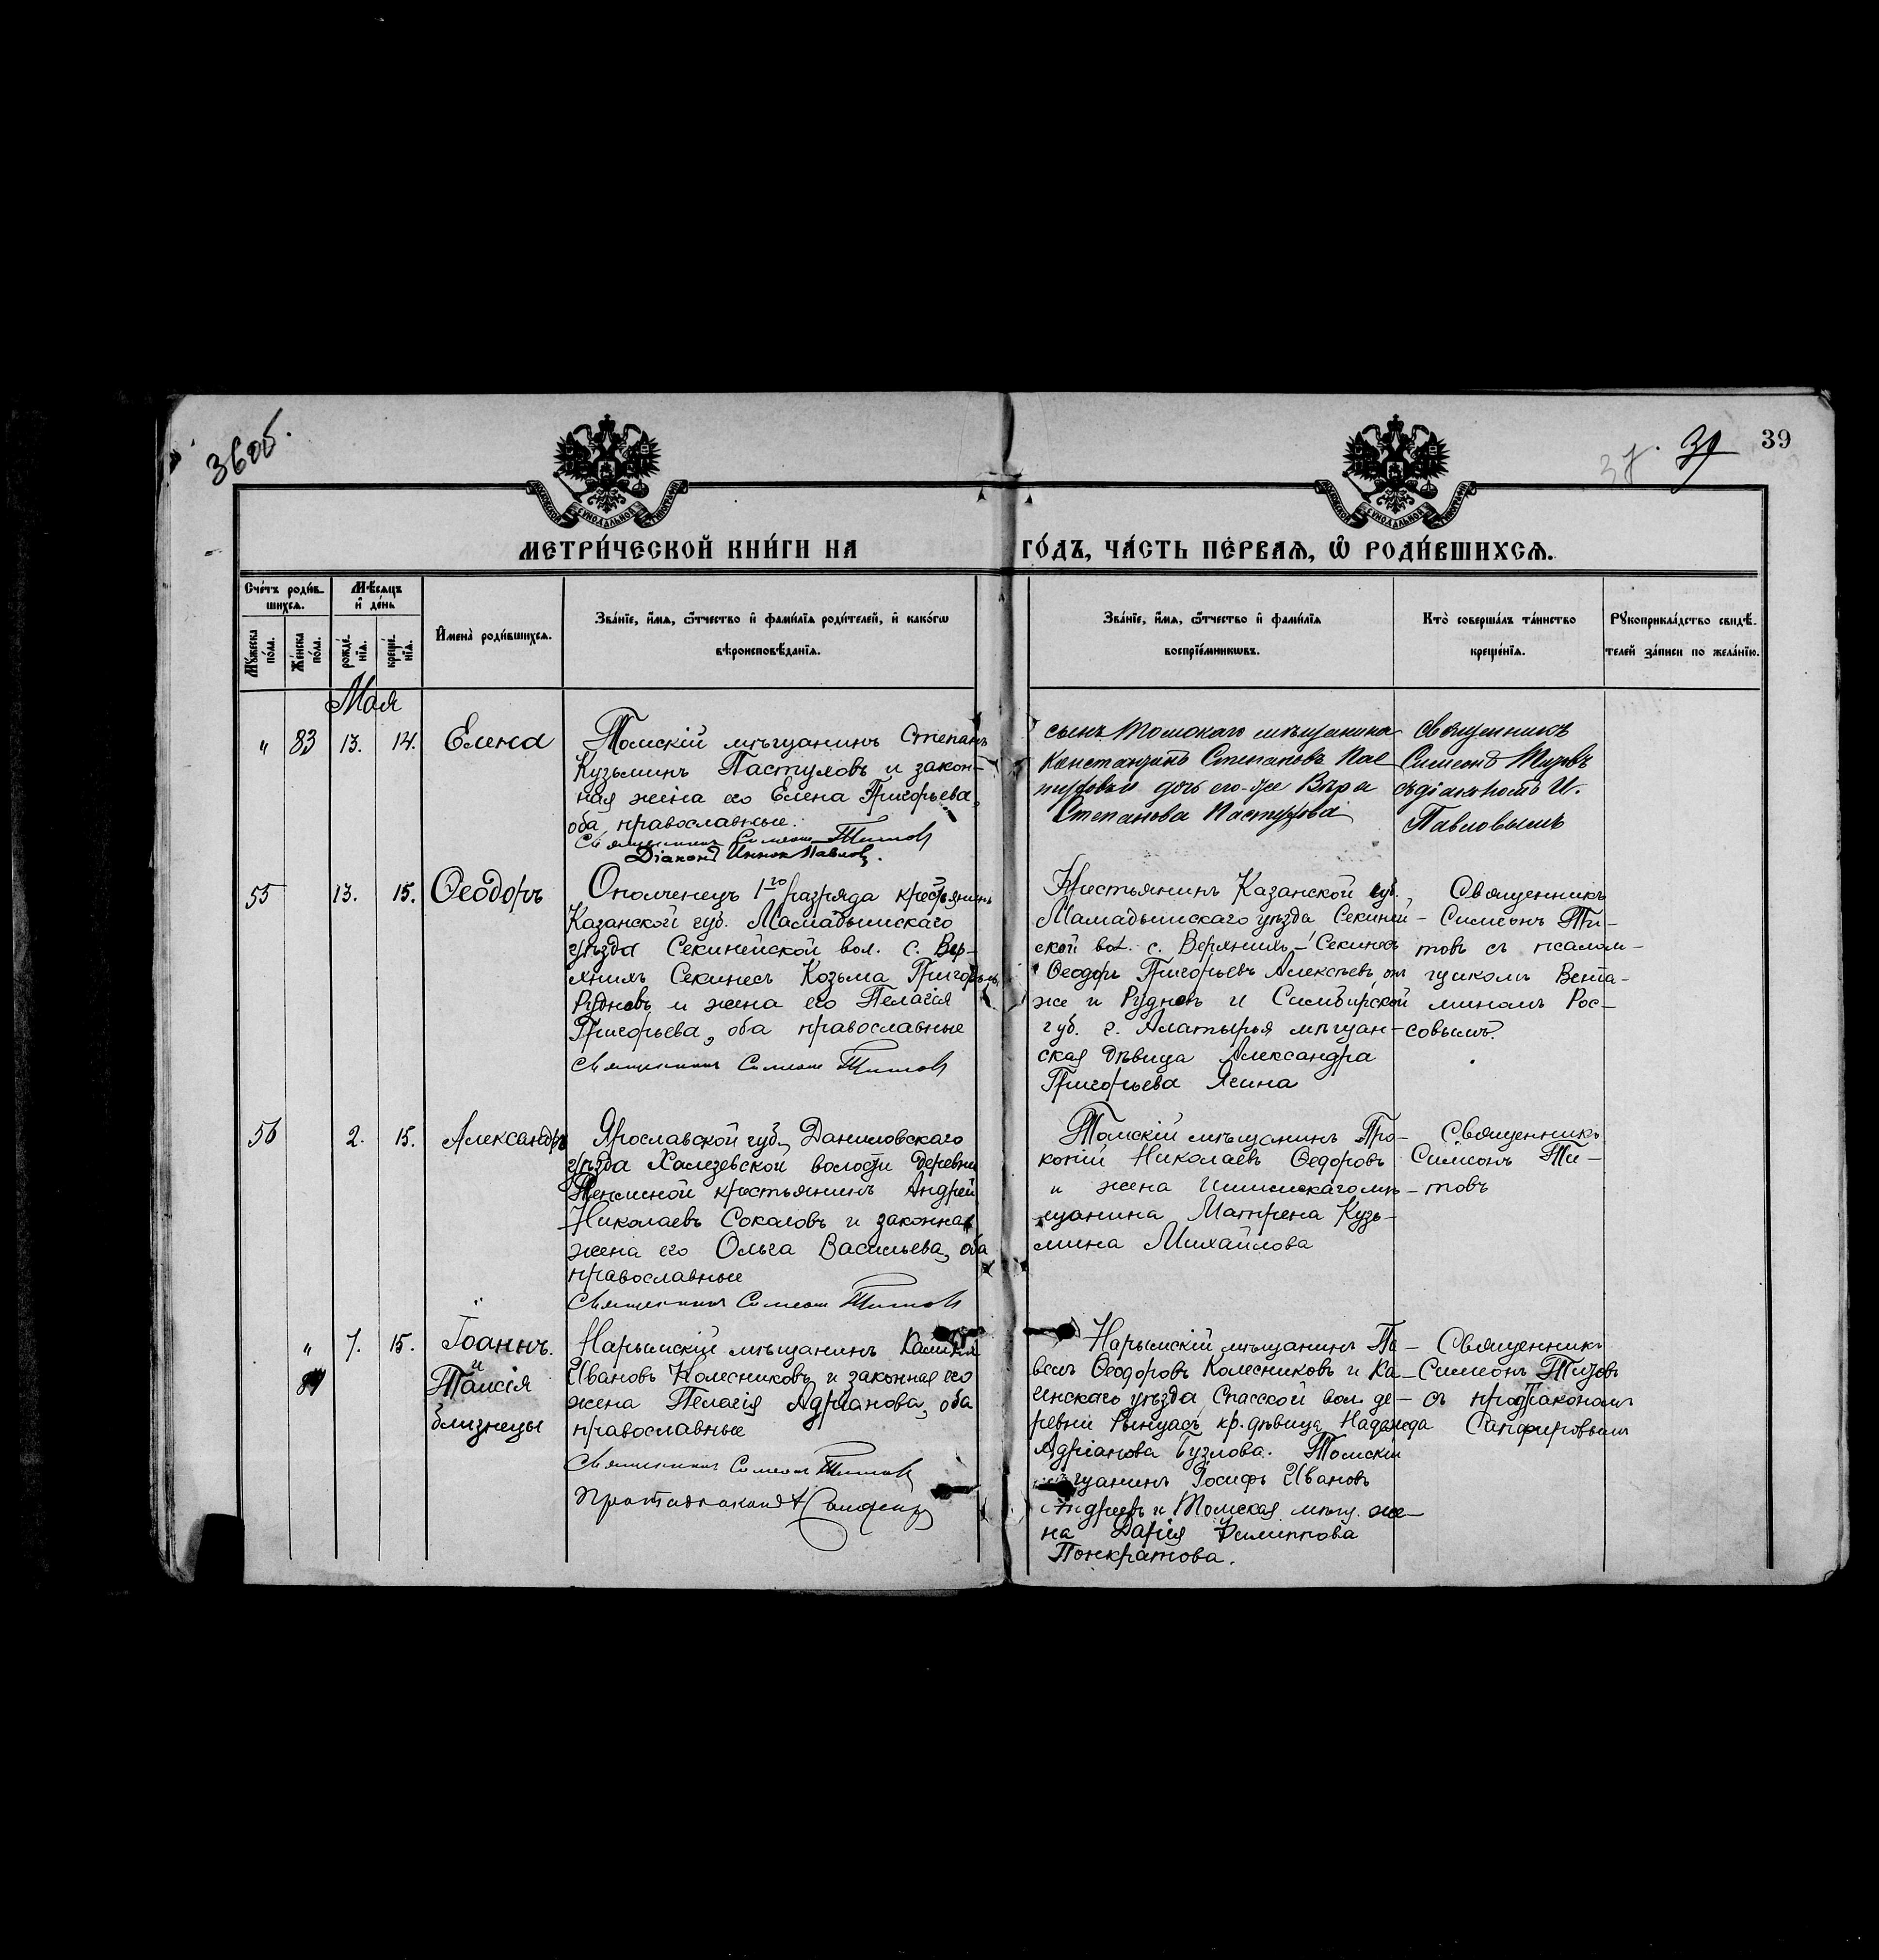 36об.
37. 39
39
МЕТРИ́ЧЕСКОЙ КНИ́ГИ НА ГО́ДЪ, ЧА́СТЬ ПЕ́РВАѦ, Ѽ РОДИ́ВШИХСѦ.
Сче́тъ роди́в-
шихсѧ.
Мѣ́сѧцъ
и҆ де́нь
Мꙋ́жеска по́ла.
Же́нска по́ла.
рожде́нїѧ.
креще́нїѧ.
И҆мена̀ роди́вшихсѧ.
Зва́нїе, и҆́мѧ, ѻ҆́тчество и҆ фами́лїѧ роди́телей, и҆ како́гѡ
вѣроисповѣ́данїѧ.
Зва́нїе, и҆́мѧ, ѻ҆́тчество и҆ фами́лїѧ
воспрїе́мникѡвъ.
Кто̀ соверша́лъ та́инство
креще́нїѧ.
Рꙋкоприкла́дство свидѣ́-
телей за́писи по жела́нїю.
Мая
" 83 13. 14. Елена
Томскій мѣщанинъ Степанъ
Кузьминъ Пастуховъ и закон-
ная жена его Елена Григорьева,
оба православные.
Священникъ Симеон Титов
Діаконъ Иннок Павловъ.
сынъ Томскаго мѣщанина
Константинъ Степановъ Пас
туховъ и дочь его-же Вѣра
Степанова Пастухова
Священникъ
Симеонъ Титовъ
съ діакономъ И.
Павловымъ
55 13. 15. Ѳеодоръ
Ополченецъ 1го разряда крестьянинъ
Казанской губ. Мамадышскаго
уѣзда Секинейской вол. с. Вер-
хнихъ Секинесъ Козьма Григорьевъ
Рудневъ и жена его Пелагія
Григорьева, оба православные
Священникъ Симеон Титов
Крестьянинъ Казанской губ.,
Мамадышскаго уѣзда Секиней-
ской вол. с. Верхнихъ-Секинесъ
Ѳеодоръ Григорьевъ Алексѣевъ он
же и Рудневъ и Симбирской
губ. г. Алатырья мѣщан-
ская дѣвица Александра
Григорьева Ясина
Священникъ
Симеонъ Ти-
товъ съ псалом-
щикомъ Вениа-
миномъ Рос-
совымъ.
56 2. 15. Александръ
Ярославской губ., Даниловскаго
уѣзда Халезевской волости деревни
крестьянинъ Андрей
Николаевъ Соколовъ и законная
жена его Ольга Васильева, оба
православные
Священникъ Симеон Титов
Томскій мѣщанинъ Про-
копій Николаевъ Ѳедоровъ
и жена Ишимскаго мѣ-
щанина Матрена Кузь-
мина Михайлова
Священникъ
Симеонъ Ти-
товъ
" 7. 15. Іоаннъ.
84 и
Таисія
близнецы
Нарымскій мѣщанинъ
Ивановъ Колесниковъ и законная его
жена Пелагія Адріанова, оба
православные
Священникъ Симеон Титов
Протодіаконъ А Сапфировъ
Нарымскій мѣщанинъ Па-
велъ Ѳеодоровъ Колесниковъ и Ка-
инскаго уѣзда Спасской вол. де-
ревни кр. дѣвица Надежда
Адріанова Гузлова. Томскій
мѣщанинъ Іосифъ Ивановъ
Андреевъ и Томская мѣщ. же-
на Дарія Филиппова
Понкратова.
Священникъ
Симеонъ Титовъ
съ протодіакономъ
Сапфировымъ